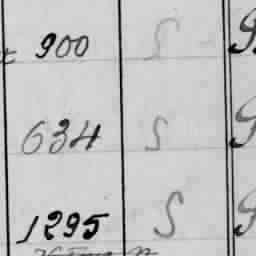 900 S
634 S
1295 S